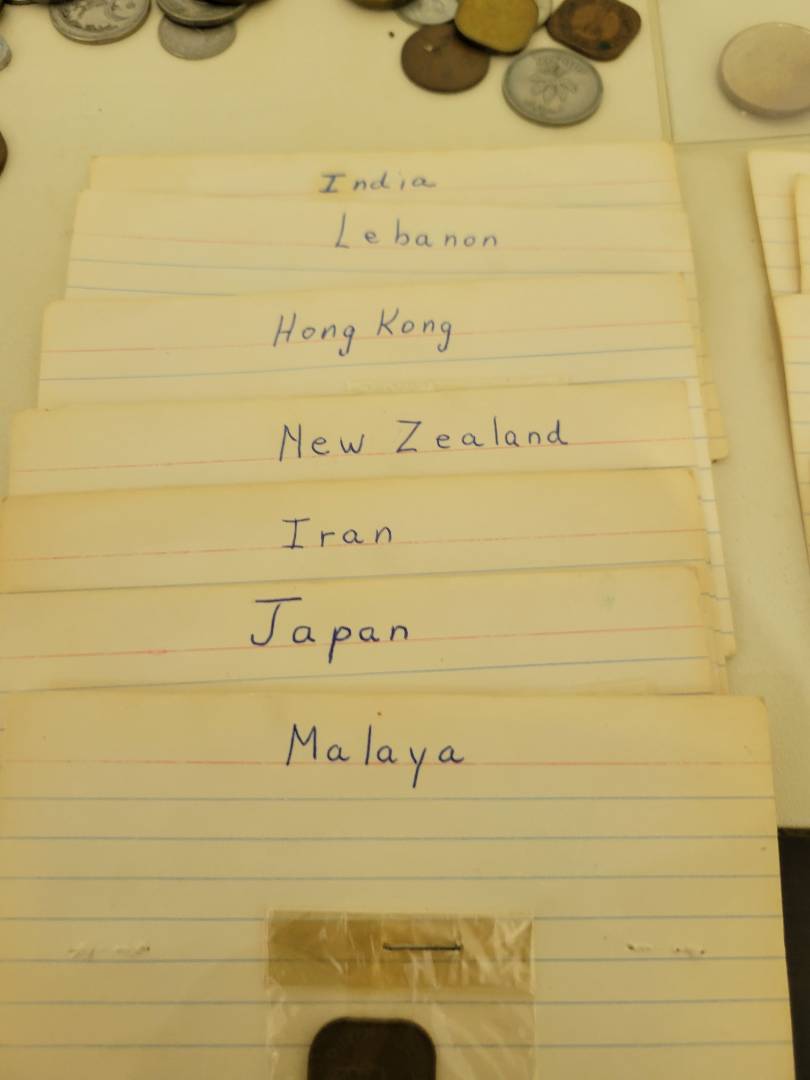 India
Lebanon
Hong Kong
New Zealand
Iran
Japan
Malaya